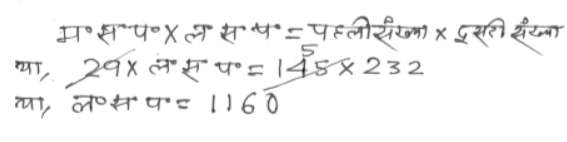 म॰ स॰ प॰ × ल स॰ प॰ = पहली संख्या × दुसरी संख्या
या, 29 × ल॰ स॰ प॰ = 145 5 × 232
या, ल॰ स॰ प॰ = 1160